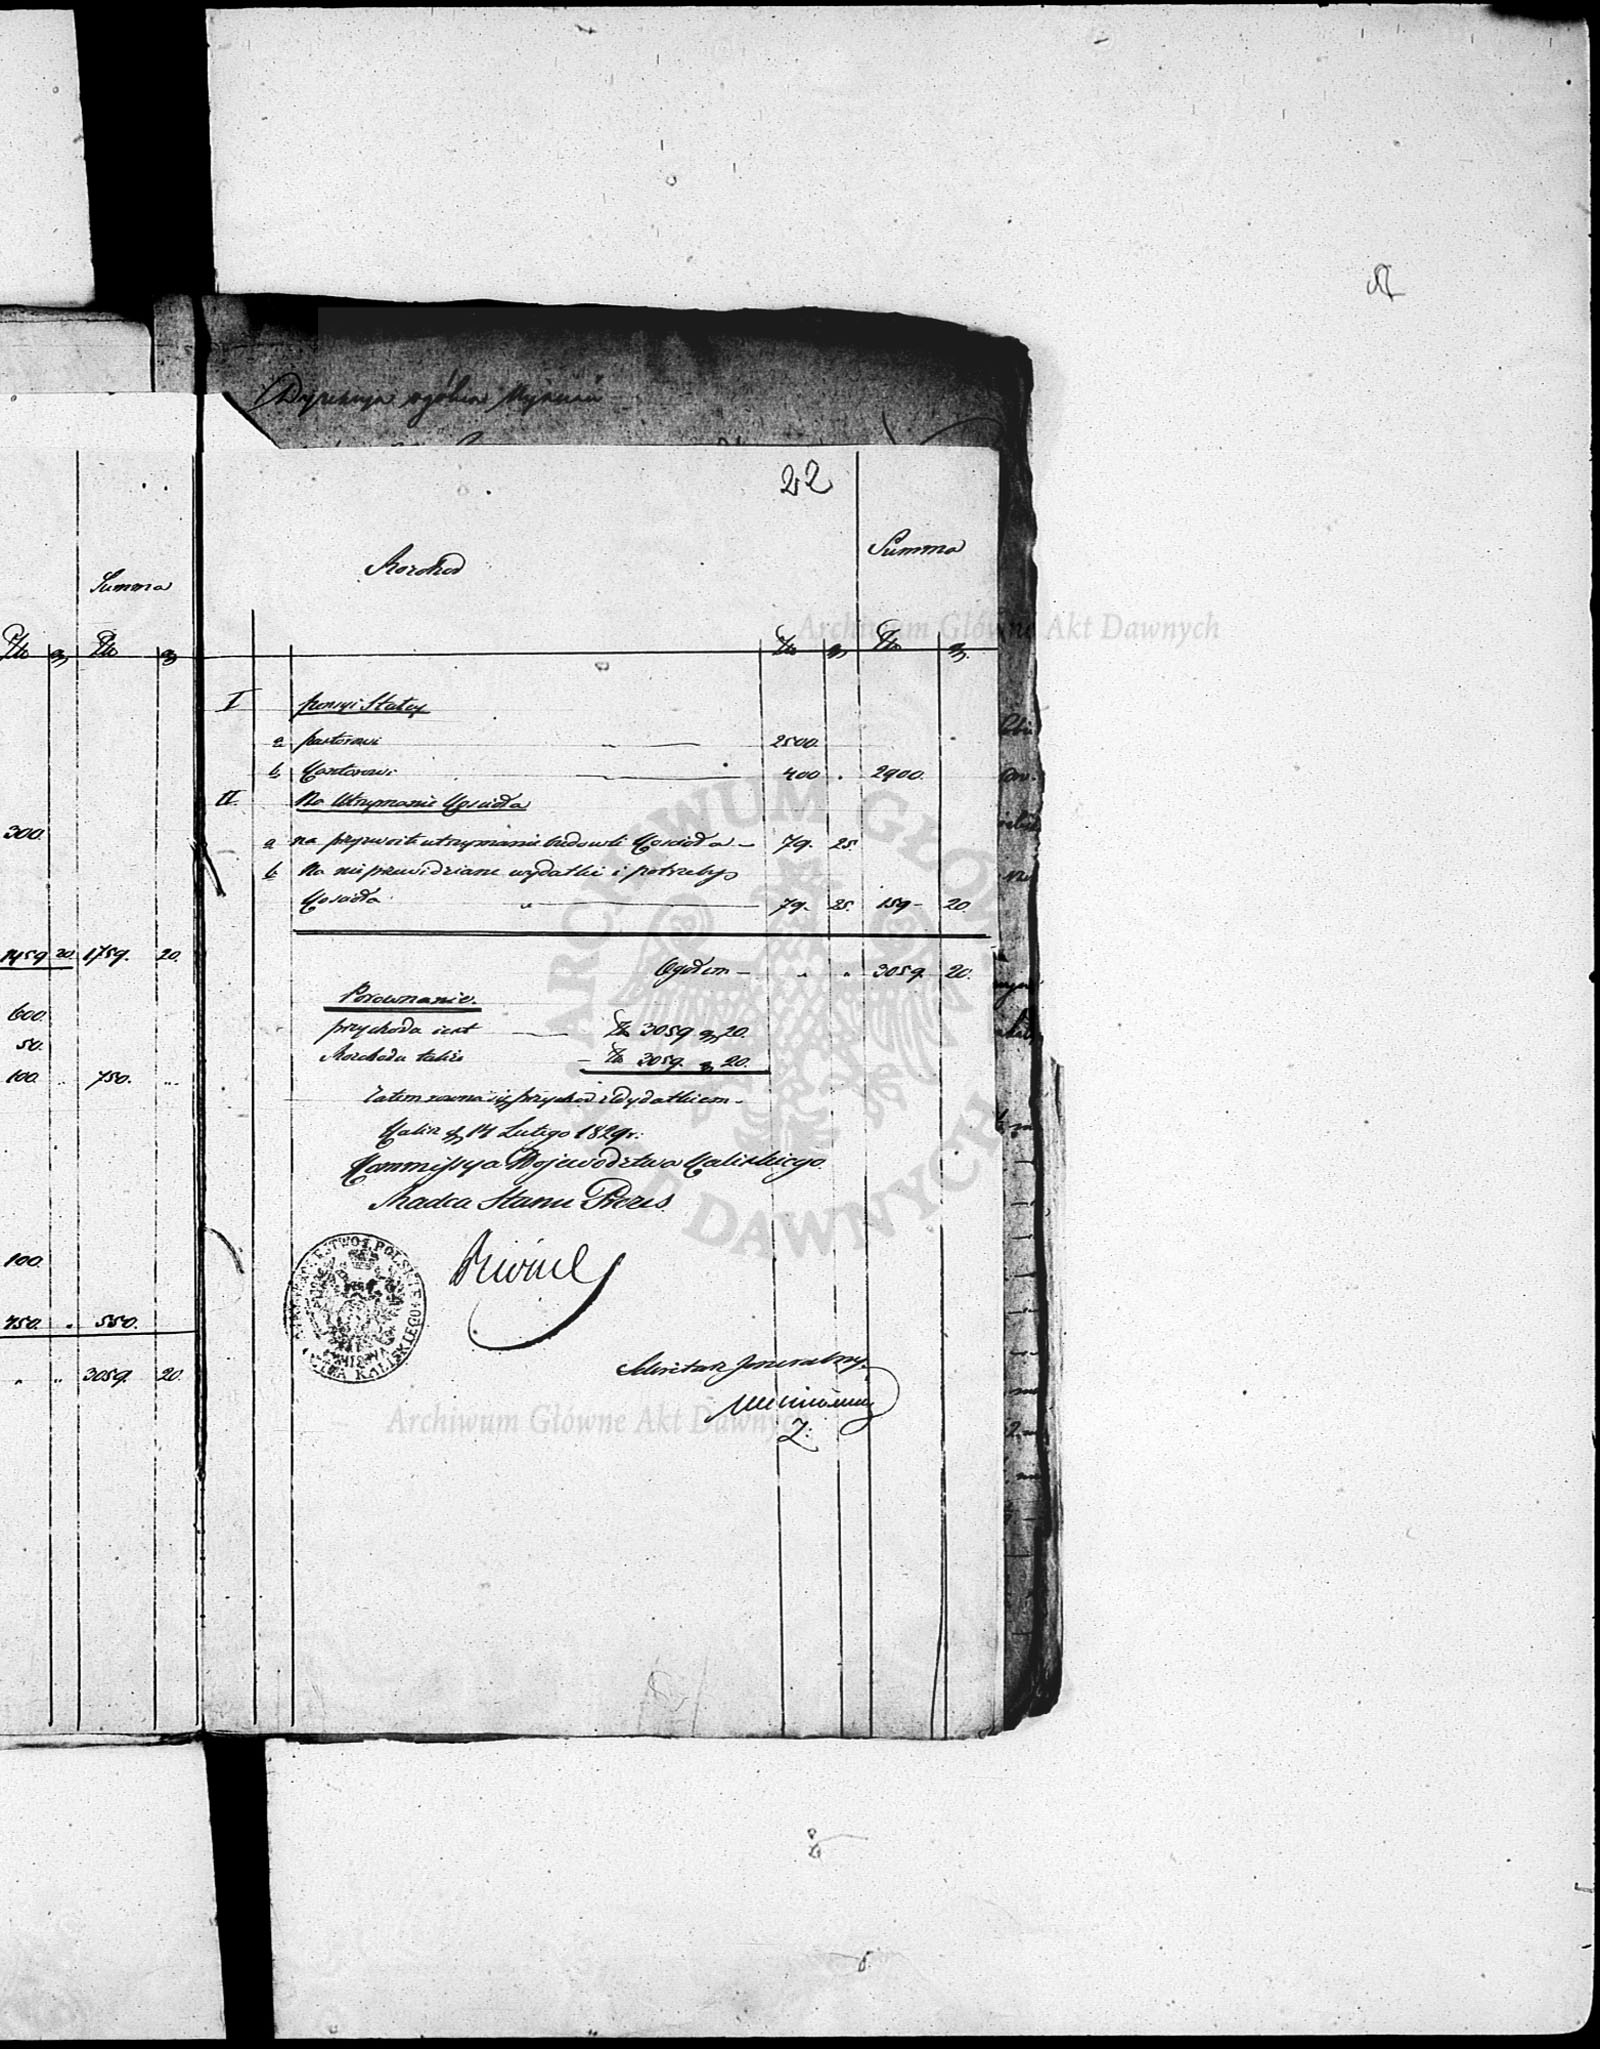 Summa
Złp gr Złp gr
300.
1459 20. 1759. 20.
600.
50.
100. .. 750. ...
100.
450. . 550.
" .. 3059. 20.
Dyrekcyja ogólna
22
Rozchod
Summa
Złp gr Złp gr.
I pensyi Stałey
a pastorowi " — 2500.
b Kantorowi — 400 . 2900.
II. Na Utrzymanie Koscioła
a na przyzwoite utrzymanie budowli Kościoła — 79. 25.
b Na nieprzewidziane wydatki i potrzeby
Koscioła " — 79. 25. 159 — 20.
Ogołem — " " 3059. 20.
Porownanie.
przychodu iest — Złp 3059 gr 20.
Rozchodu takze — Złp 3059. gr 20.
Zatem rowna się przychod z Wydatkiem.
Kalisz d. 14 Lutego 1829 r.
Kommissya Wojewodztwa Kaliskiego.
Radca Stanu Prezes
KALISKIEGO
Sekretarz Jeneralny.
Z:
Archiwum Główne Akt Dawnych
ARCHIWUM GŁÓWNE AKT DAWNYCH
Archiwum Główne Akt Dawnych